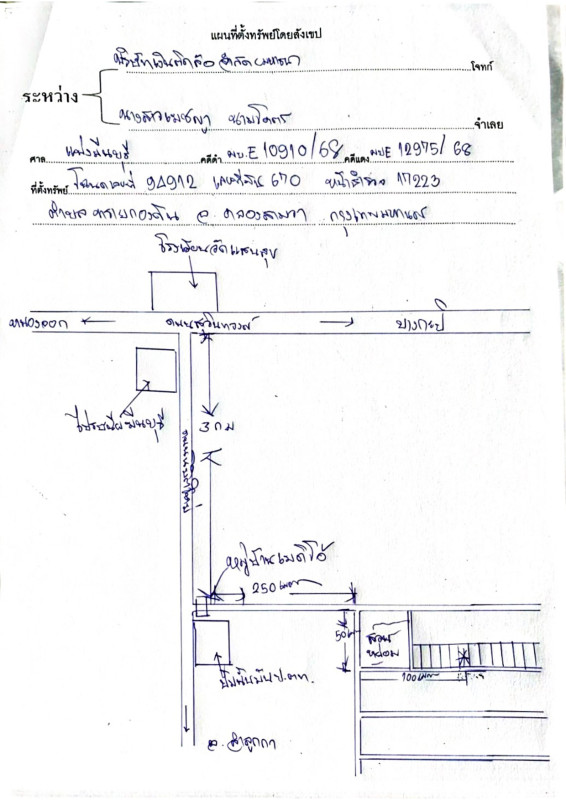 แผนที่ตั้งทรัพย์โดยสังเขป
บริษัทเงินติดล้อ จำกัด (มหาชน) โจทก์
ระหว่าง
นางสาว นามโคตร จำเลย
ศาล แพ่งมีนบุรี คดีดำ ผบ.E 10910/68 คดีแดง ผบE 12975/68
ที่ตั้งทรัพย์ โฉนดเลขที่ 94912 เลขที่ดิน 670 หน้าสำรวจ 17223
ตำบล ทรายกองดิน อ. คลองสามวา กรุงเทพมหานคร
โรงเรียนวัดแสนสุข
หนองจอก ถนนสุวินทวงศ์ บางกะปิ
ไปรษณีย์มีนบุรี
3 กม
ถนน
หมู่บ้านเมดิโอ้
250 เมตร
50 เมตร
สวนหย่อม
ปั้มน้ำมัน ป.ต.ท.
100 เมตร
อ. ลำลูกกา